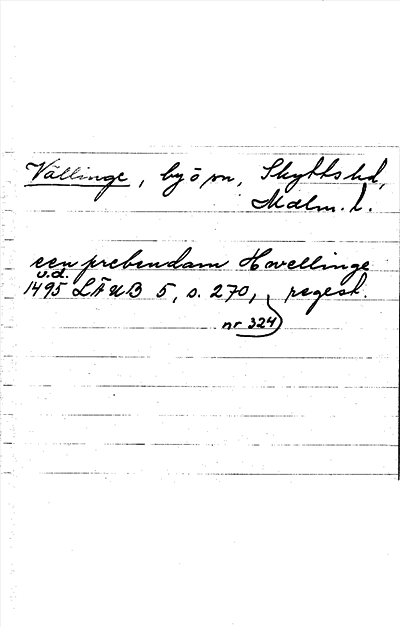 Vällinge, by o sn, Skytts hd,
Malm. l.
een prebendam Hovellinge
u.d.
1495 LÄUB 5, s. 270, regest.
nr 324